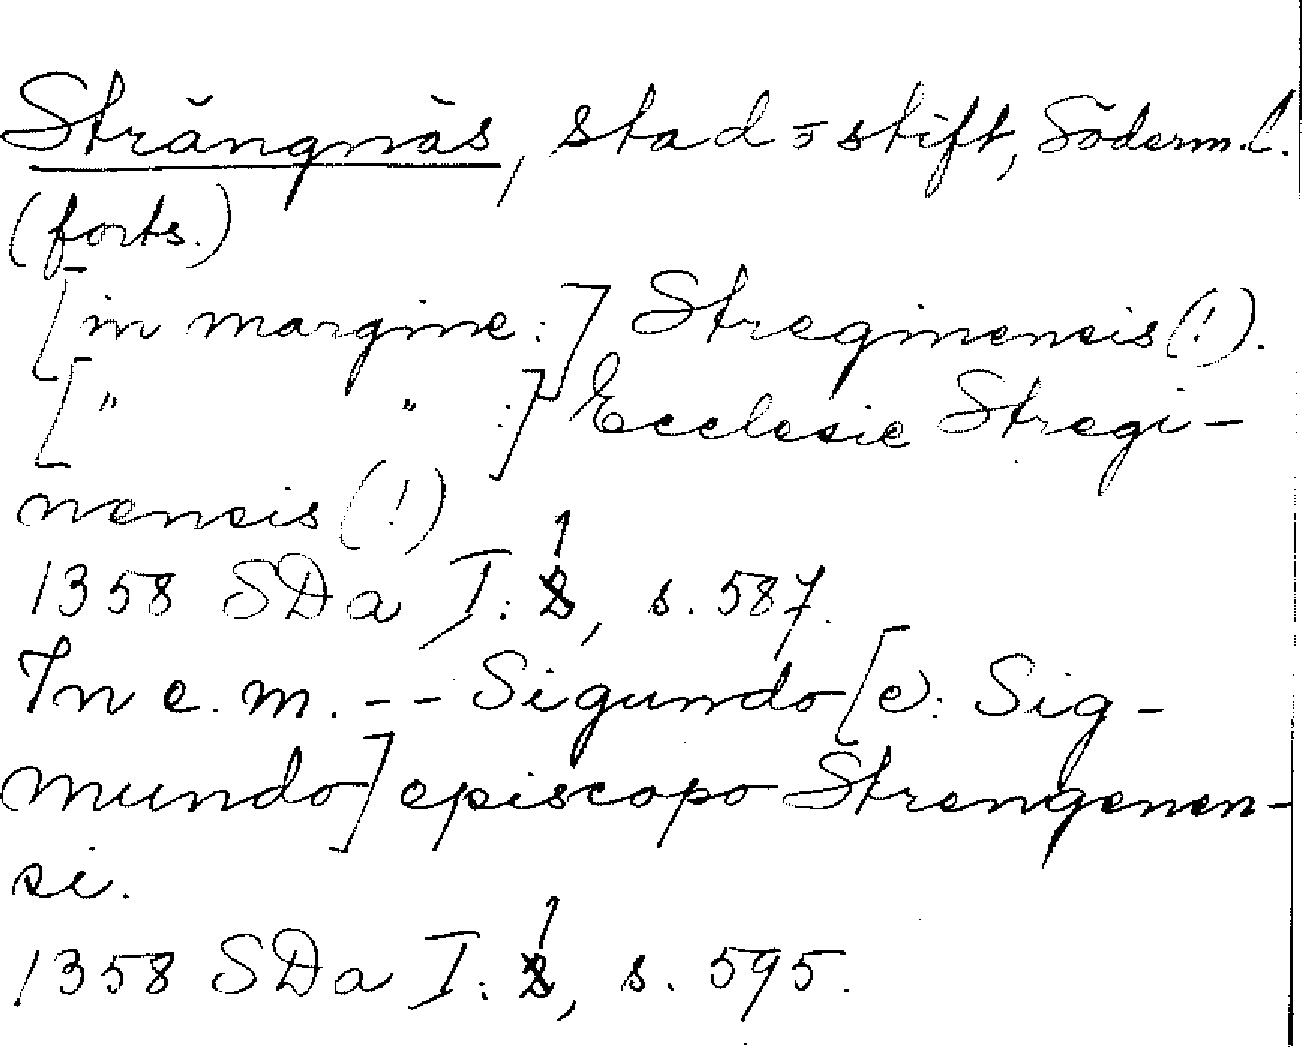 Strängnäs, stad o stift, Söderm. l.
(forts.)
[in margine:] Streginensis (!).
[" " :] Ecclesie Stregi-
nensis (!)
1358 SDa I: 1, s. 587.
In c. m. -- Sigundo [ɔ: Sig-
mundo] episcopo Strengenen-
si.
1358 SDa I: 1, s. 595.